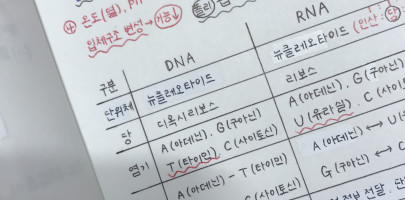 온도(열), pH
입체구조 변성 → 기능↓
DNA RNA
구분
단위체 뉴클레오타이드 뉴클레오타이드 (인산:당
당 디옥시리보스 리보스
염기 A(아데닌), G(구아닌) A(아데닌), G(구아닌)
T(타이민), C(사이토신) U(유라실), C(사이
A(아데닌) - T(타이민) A(아데닌) ↔ U(
(사이토신) G(구아닌) ↔ C(
전달,